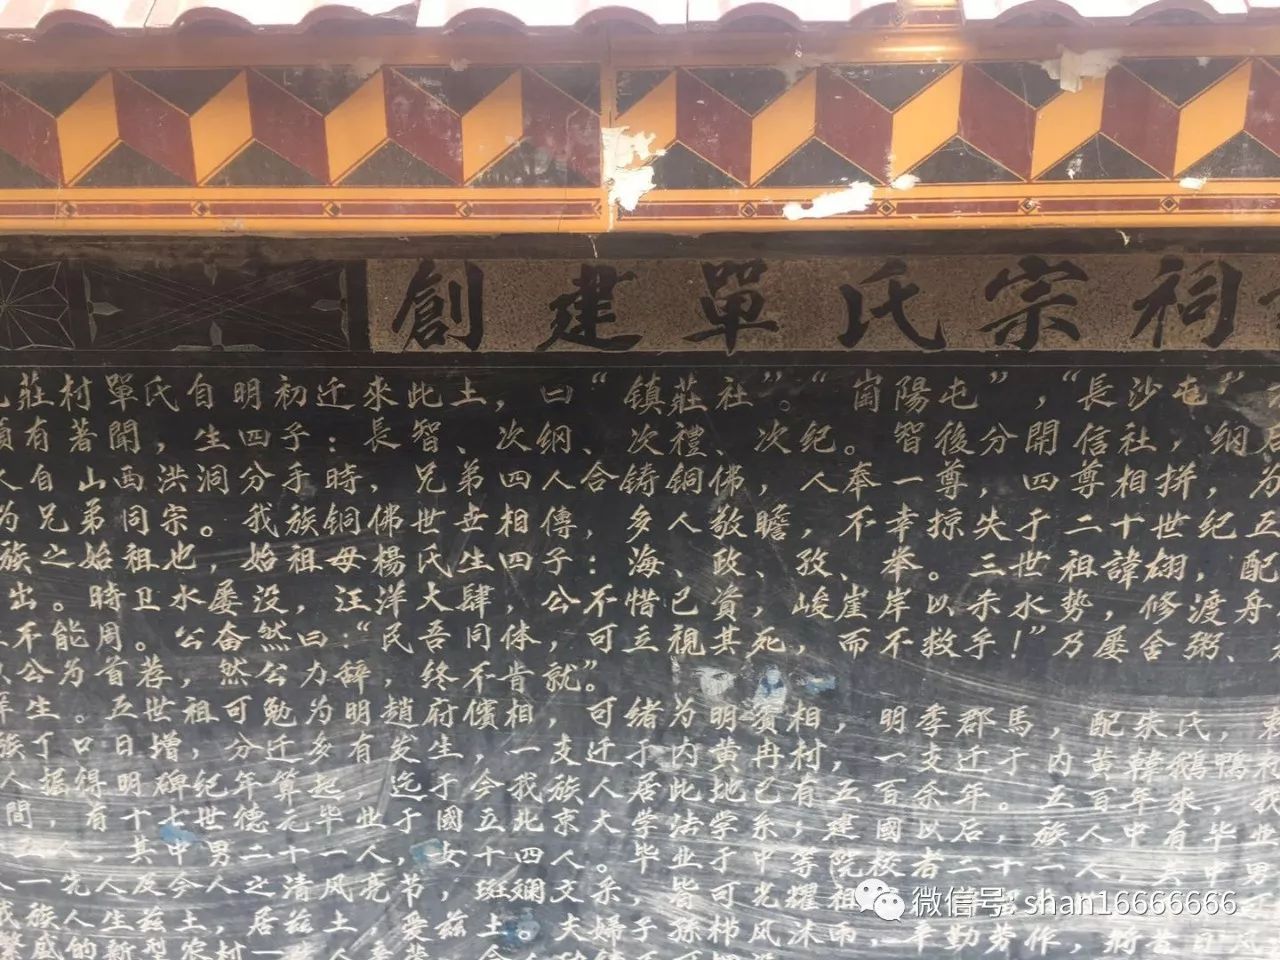 創建單氏宗祠
莊村單氏自明初迁來此土，曰“镇莊社”。“崗陽屯”，“長沙屯”
有著聞，生四子：長智、次纲、次禮、次纪。智後分開信社，纲
人自山西洪洞分手時，兄弟四人合铸铜佛，人奉一尊，四尊相拼，为
为兄弟同宗。我族铜佛世世相傳，多人敬瞻，不幸掠失于二十世纪五
族之始祖也，始祖母楊氏生四子：海、政、孜、举。三世祖諱翃，配
出。時卫水屡没，汪洋大肆，公不惜己資，峻崖岸以杀水勢，修渡舟
不能周。公奋然曰：“民吾同体，可立視其死，而不救乎！”乃屡舍粥、
公为首荐，然公力辞，终不肯就”。
生。五世祖可勉为明趙府儐相，可绪为明賓相，明季郡馬，配宋氏，
族丁口日增，分迁多有发生，一支迁于内黄冉村，一支迁于内黄韓鵝鴨
人掘得明碑纪年算起，迄于今我族人居此地已有五百余年。五百年來，我
間，有十七世德元毕业于國立北京大学法学系，建國以后，族人中有毕业
人，其中男二十一人，女十四人。毕业于中等院校者二十一人，其中男
先人及今人之清风亮节，斑斓文采，皆可光耀祖
族人生兹土，居兹土，爱兹土。夫婦子孫栉风沐雨，辛勤劳作，將昔日风
繁盛的新型农村
微信号: shan16666666